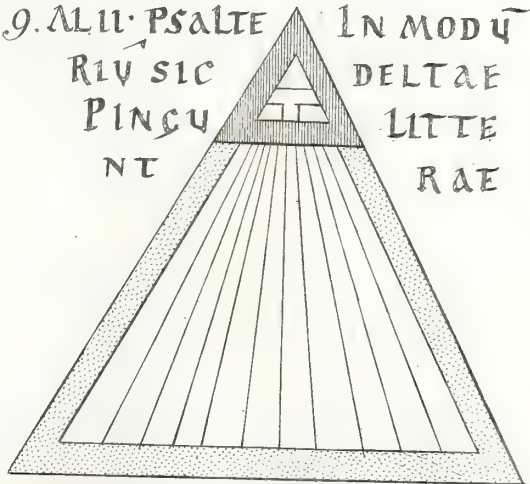 9. ALII· PSALTE
RIŪ SIC
PINGU
NT
IN MODŪ
DELTAE
LITTE
RAE